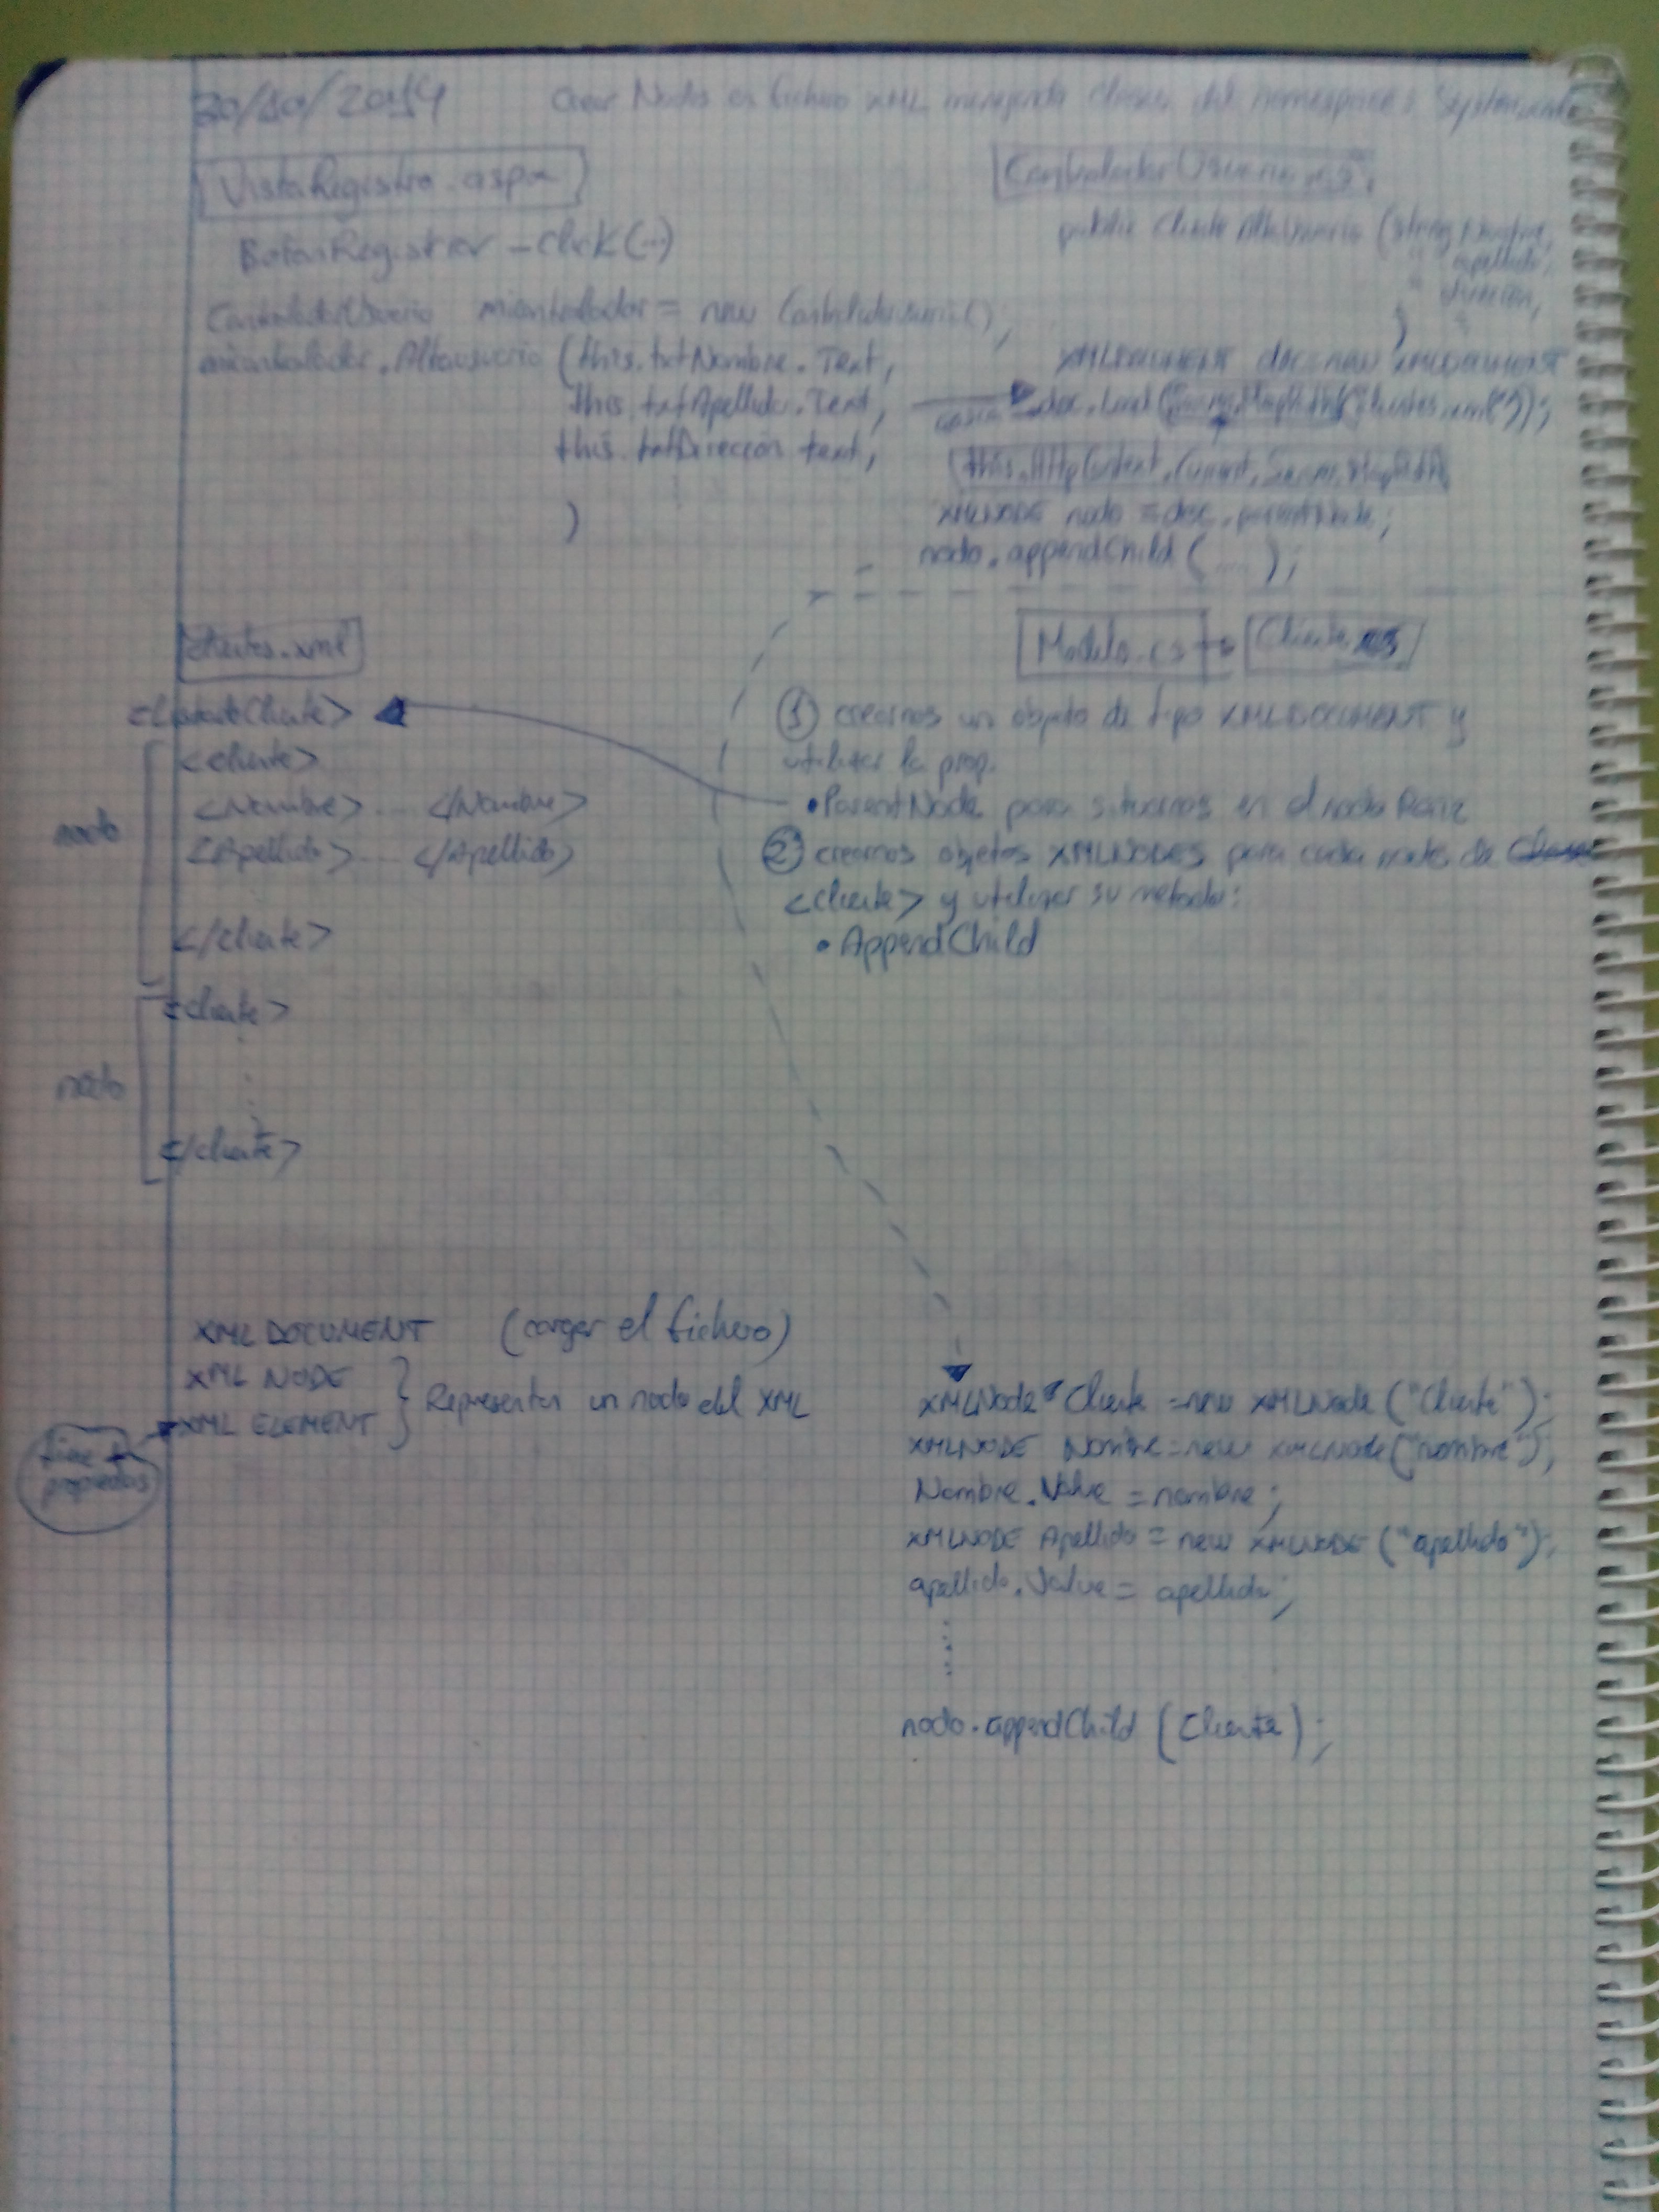 30/10/2014 Crear Nodos en fichero XML manejando clases del namespace: System.
VistaRegistro.aspx
BotonRegistrar_Click(...)
ControladorUsuario micontrolador = new ControladorUsuario();
micontrolador.Altausuario (this.txtNombre.Text,
this.txtApellido.Text,
this.txtDirección text,
)
ControladorUsuario.cs
public Cliente AltaUsuario (string Nombre,
" apellido,
" dirección,
)
XMLDOCUMENT doc = new XMLDOCUMENT
doc.Load(Server.MapPath("clientes.xml"));
this.HttpContext.Current.Server.MapPath
XMLNODE nodo = doc.parentNode;
nodo.appendChild (.....);
Clientes.xml
<ListadeCliente>
<cliente>
nodo
<Nombre> .... </Nombre>
<Apellido> .... </Apellido>
</cliente>
<cliente>
nodo
</cliente>
Modelo.cs → Cliente.cs
① creamos un objeto de tipo XMLDOCUMENT y
utilizar la prop.
• ParentNode para situarnos en el nodo Raiz
② creamos objetos XMLNODES para cada nodo de
<cliente> y utilizar su metodo:
• AppendChild
XML DOCUMENT (cargar el fichero)
XML NODE
XML ELEMENT } Representan un nodo del XML
tiene +
propiedades
XMLNode Cliente = new XMLNode ("Cliente");
XMLNODE Nombre = new XMLNode("nombre");
Nombre.Value = nombre;
XMLNODE Apellido = new XMLNODE ("apellido");
apellido.Value = apellido;
nodo.appendChild (Cliente);